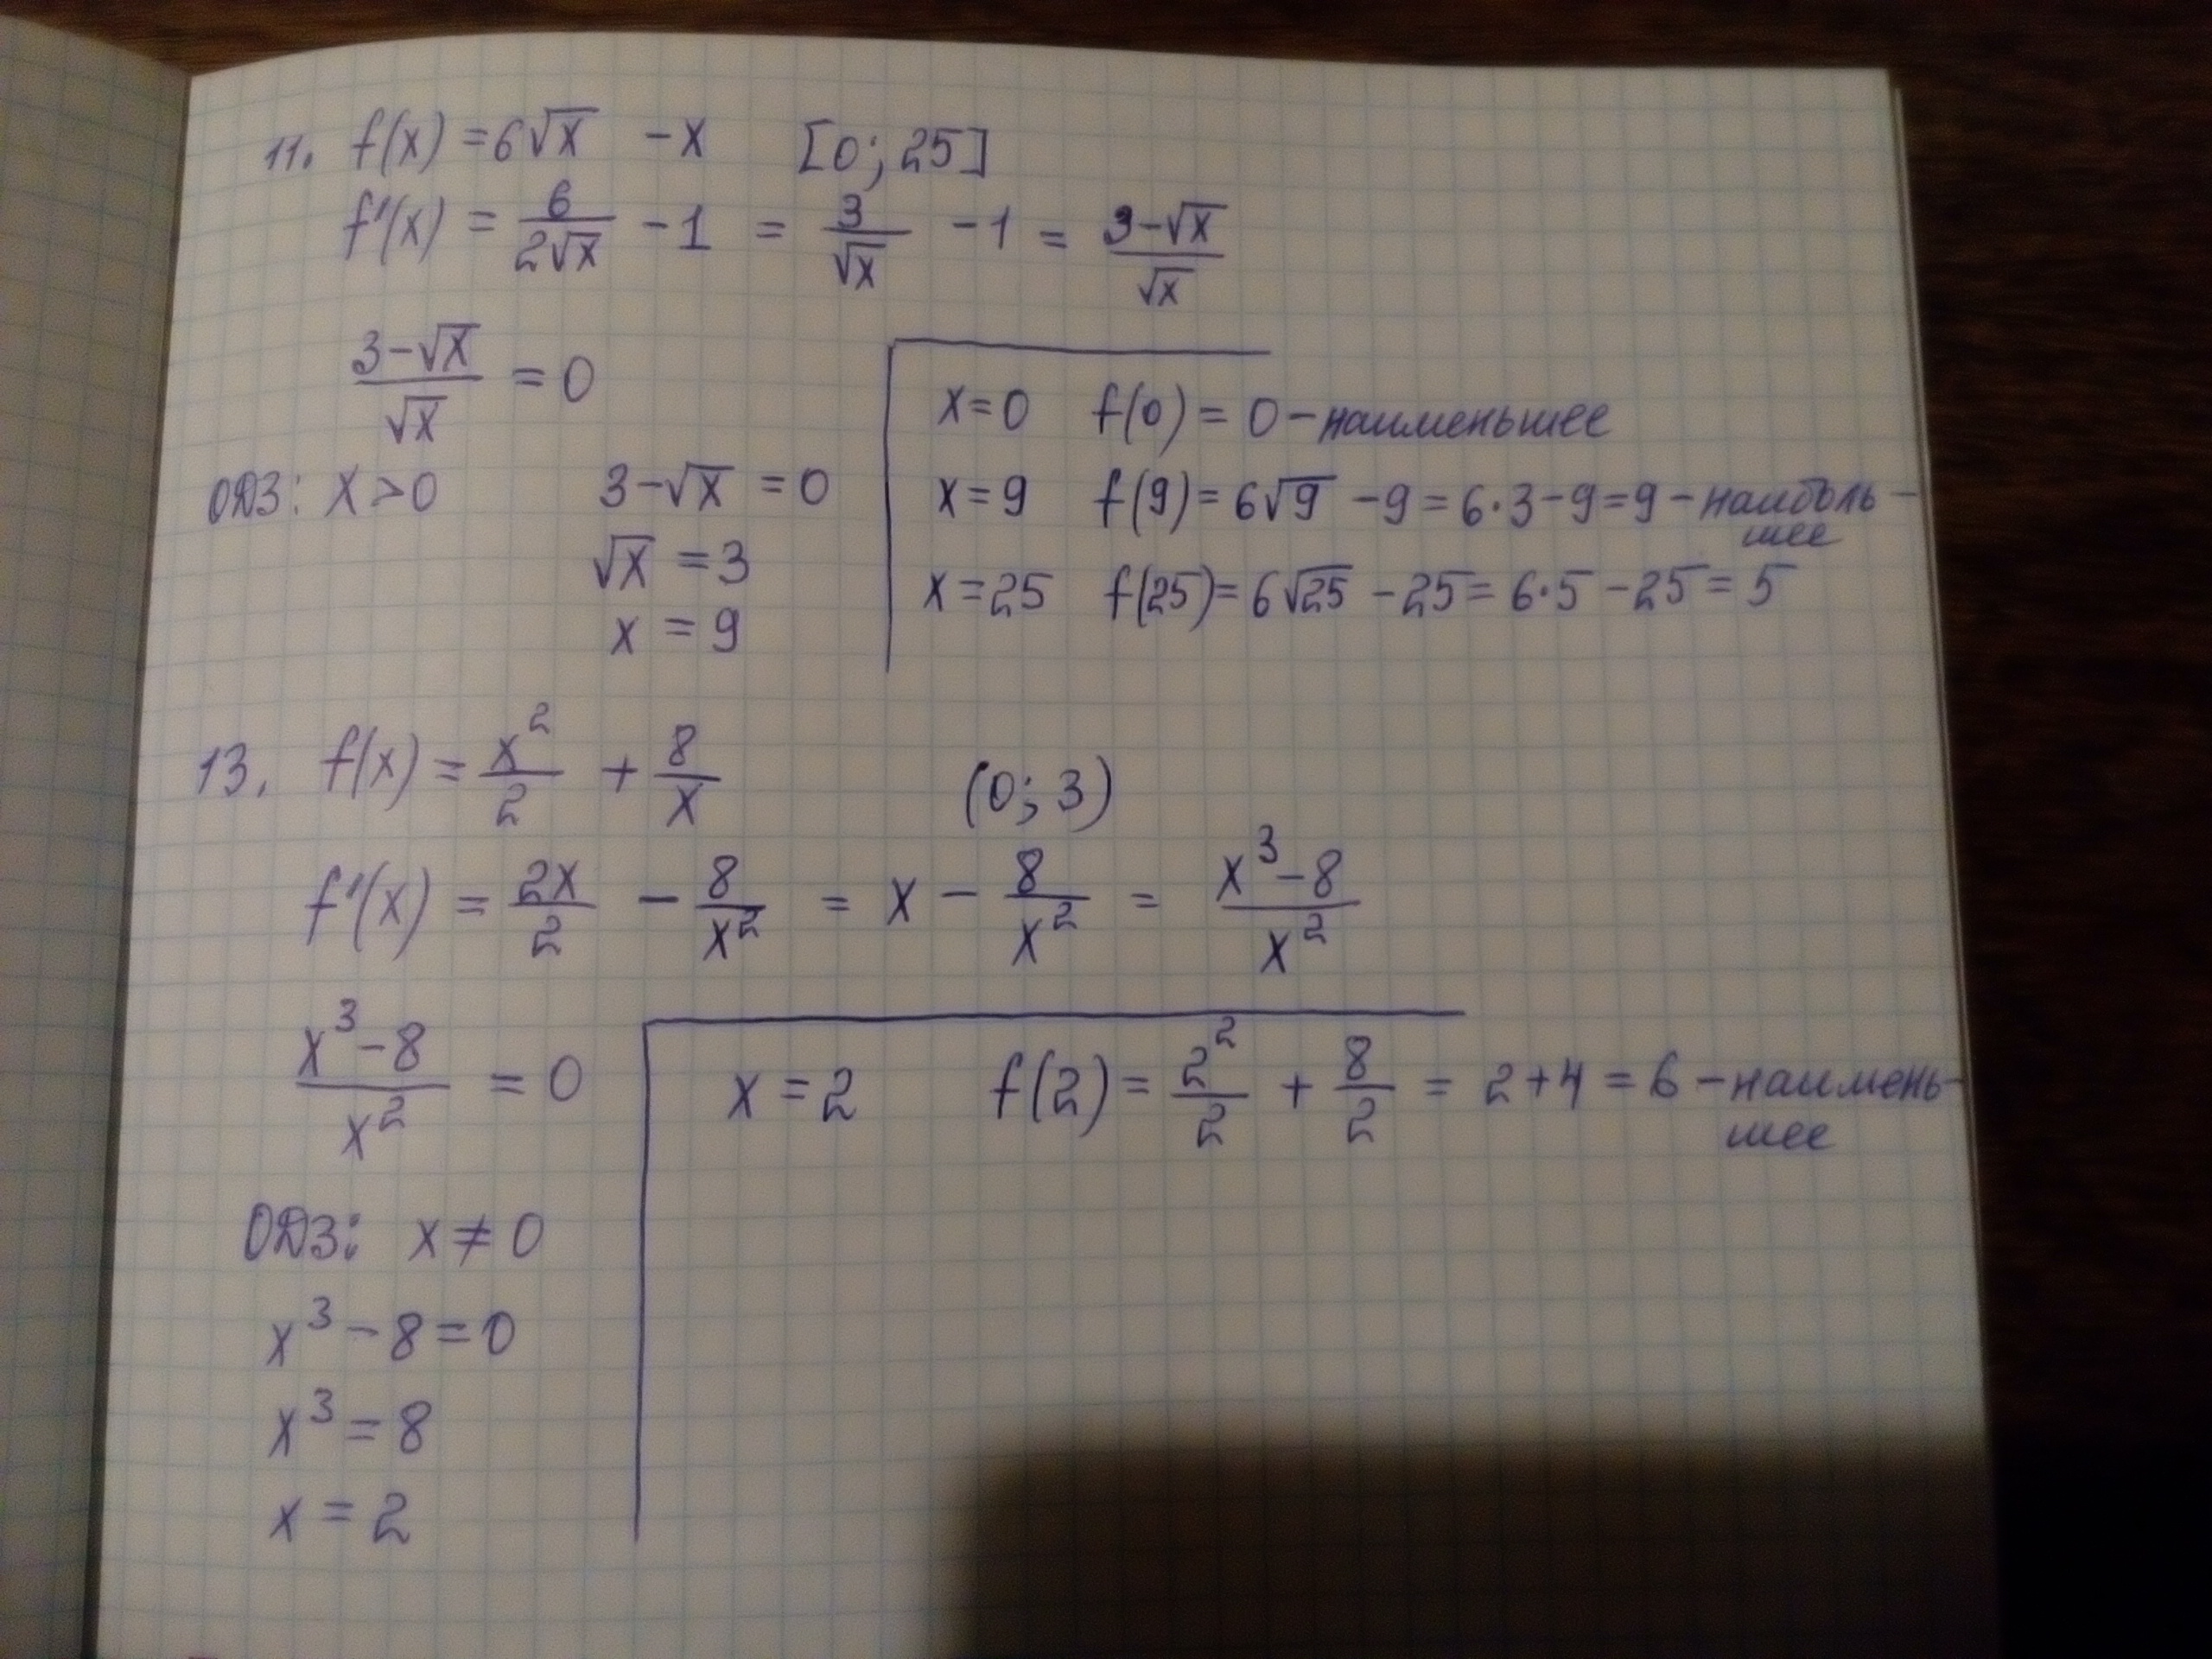 11. f(x) = 6√x - x [0; 25]
f'(x) = 6/(2√x) - 1 = 3/√x - 1 = (3-√x)/√x
(3-√x)/√x = 0
ОДЗ: x > 0
3-√x = 0
√x = 3
x = 9
x = 0 f(0) = 0 - наименьшее
x = 9 f(9) = 6√9 - 9 = 6·3-9=9 - наиболь-
шее
x = 25 f(25) = 6√25 - 25 = 6·5 - 25 = 5
13. f(x) = x²/2 + 8/x (0; 3)
f'(x) = 2x/2 - 8/x² = x - 8/x² = (x³-8)/x²
(x³-8)/x² = 0
ОДЗ: x ≠ 0
x³ - 8 = 0
x³ = 8
x = 2
x = 2 f(2) = 2²/2 + 8/2 = 2+4 = 6 - наимень-
шее